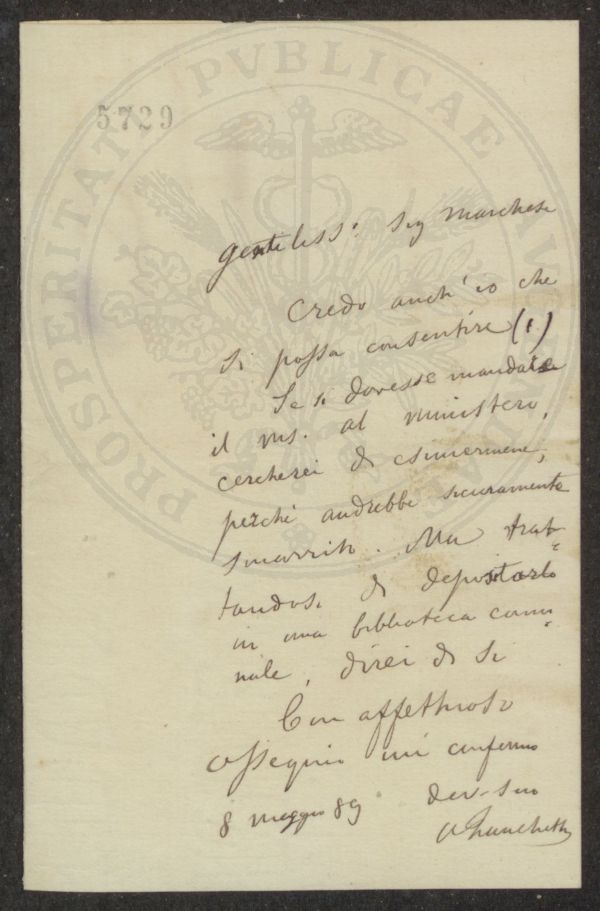 5729
PROSPERITATI PVBLICAE AVGENDAE
Gentiliss: Sig Marchese
Credo anch'io che
si possa consentire (1)
Se si dovesse mandare
il ms. al ministero,
cercherei di esimermene,
perchè andrebbe sicuramente
smarrito. Ma trat-
tandosi di depositarlo
in una biblioteca comu-
nale, direi di si
Con affettuoso
ossequio mi confermo
8 maggio 89 dev. suo